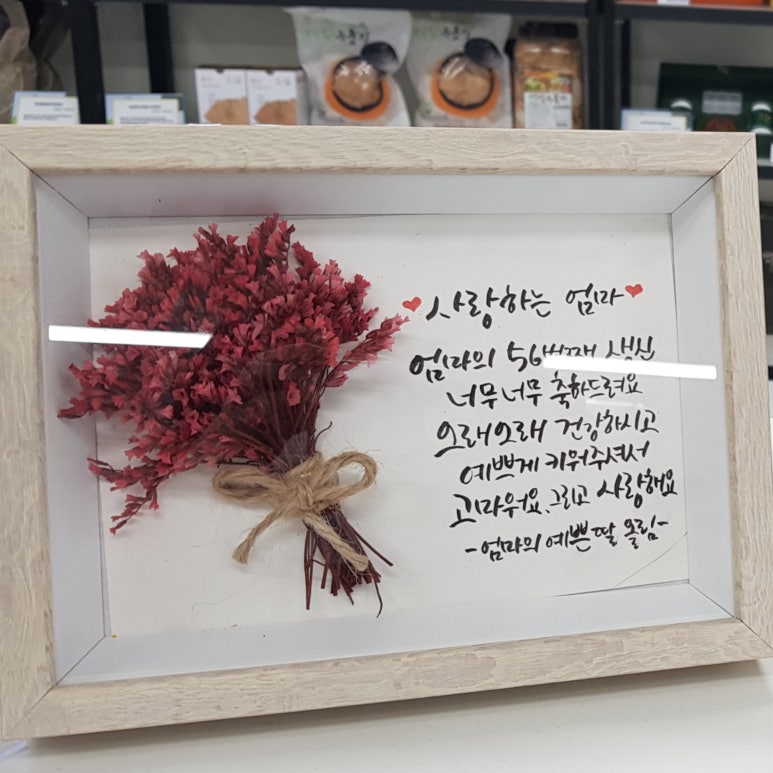 사랑하는 엄마
엄마의 56번째 생신
너무너무 축하드려요
오래오래 건강하시고
예쁘게 키워주셔서
고마워요. 그리고 사랑해요
-엄마의 예쁜 딸 올림-